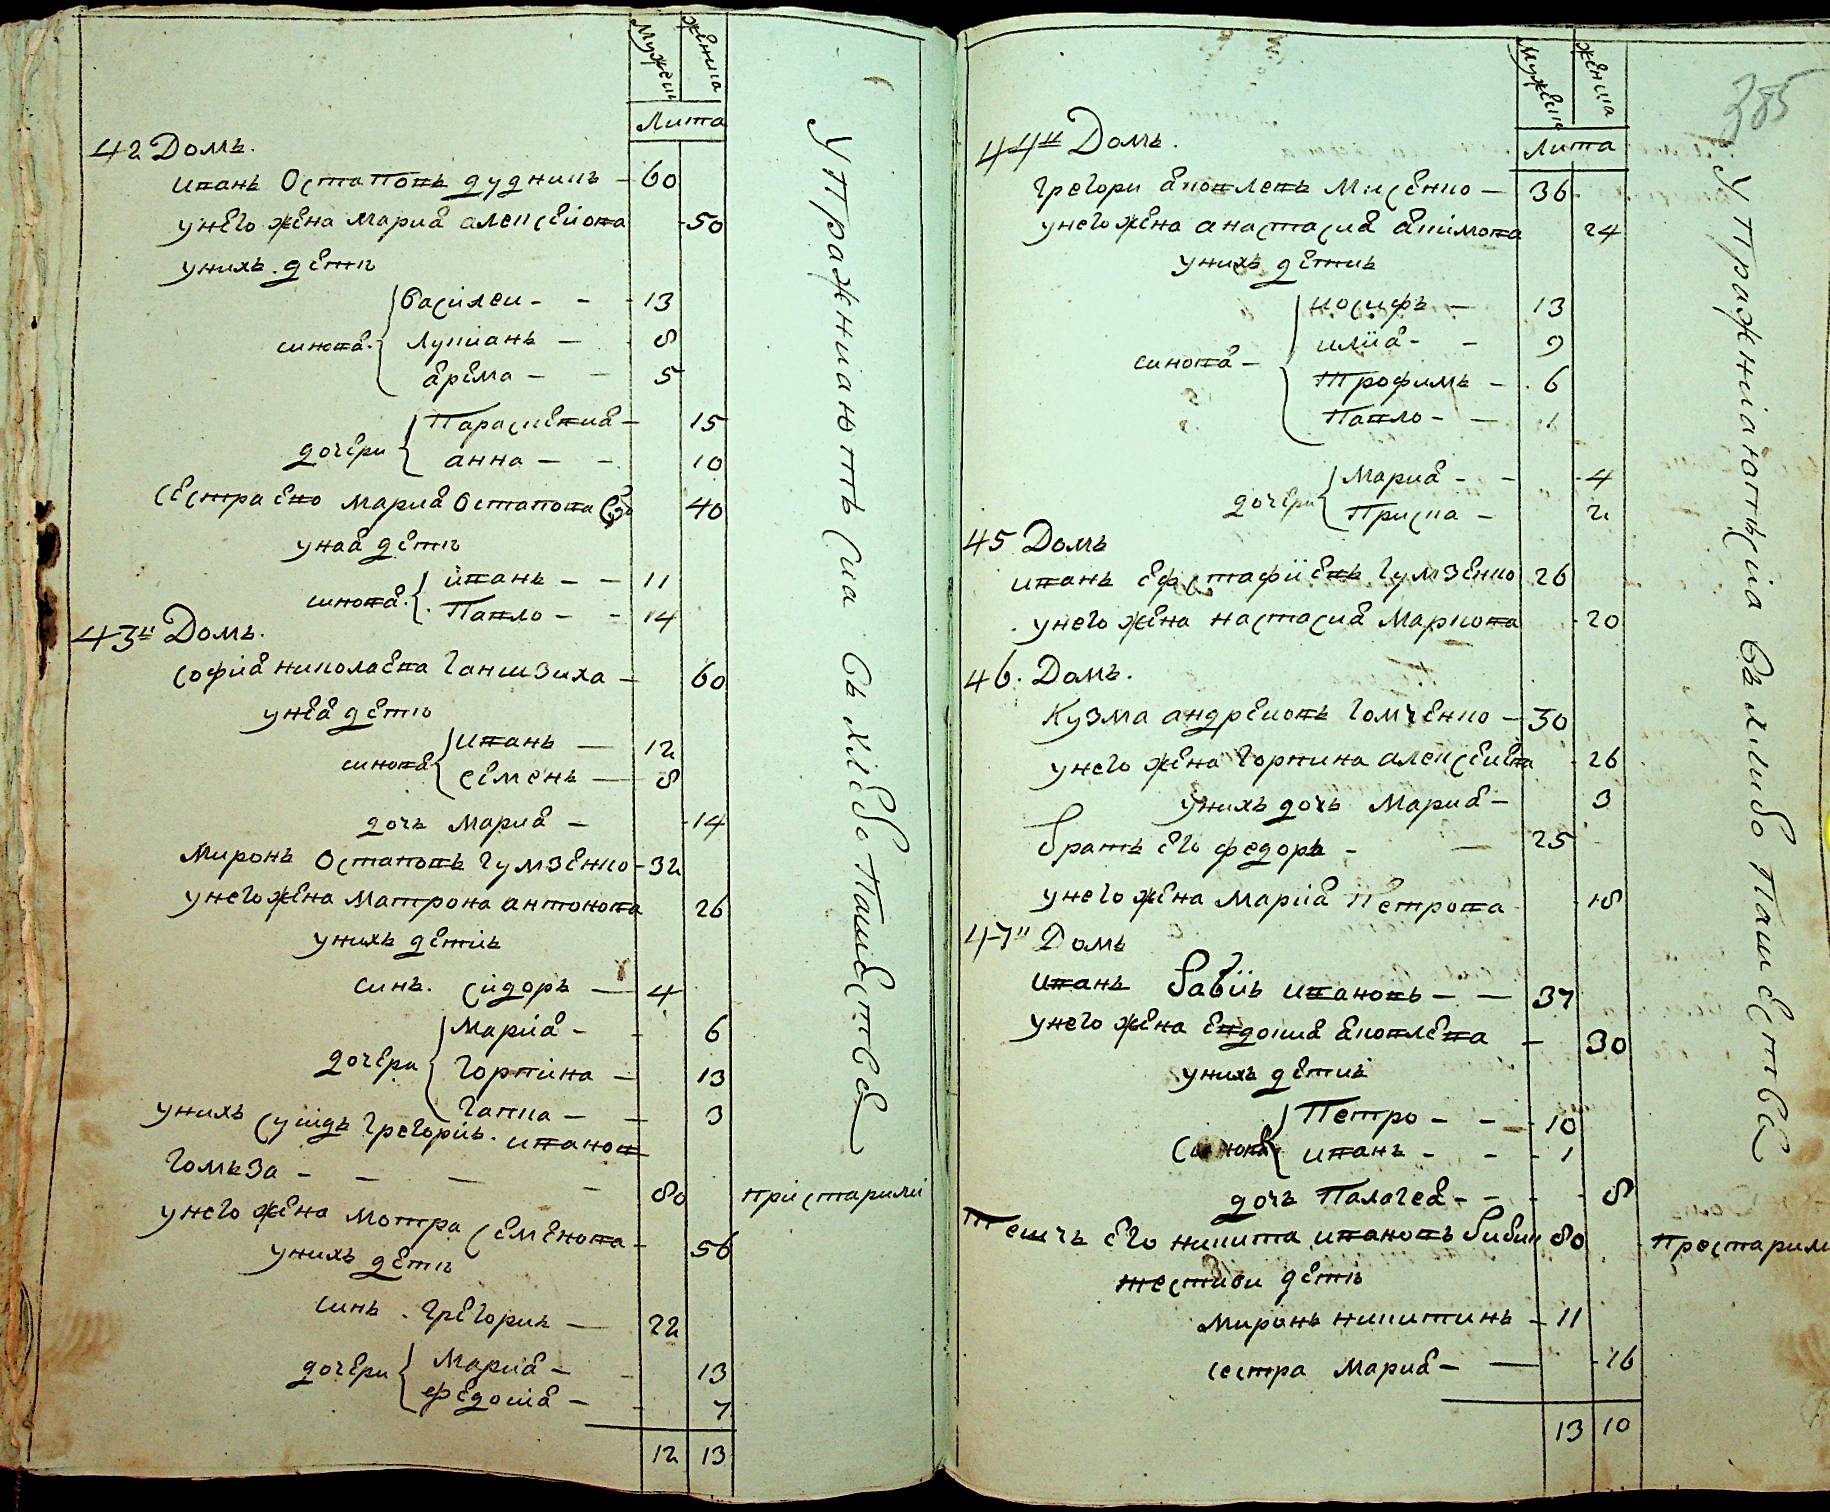 Мужеш
женша
Лита
42 Домъ.
иванъ Остаповъ дудникъ - 60
унего жена Мариа алексеиова - 50
унихъ дети
синова Василеи - - 13
Лукианъ - 8
Ярема - - 5
дочери Параскевиа - 15
анна - - 10
сестра ево Мариа Остапова вдо 40
унаа дети
синова иванъ - - 11
Павло - - 14
43й Домъ.
Софиа николаева Ганшзиха - 60
унеа дети
синова Иванъ - 12
семенъ - 8
дочь Мариа - 14
Миронъ Остаповъ Гумзенко - 32
унего жена Матрона антонова 26
унихъ детиь
синъ. сидоръ - 4
дочери Мариа - - 6
Горпина - 13
Гапка - - 3
унихъ сусидъ Григориь. иванов
Гомъза - - - - 80
прiстарилi
унего жена Мотра Семенова - 56
унихъ дети
синъ. Грегориь - 22
дочери Мариа - - 13
федосиа - - 7
12 13
Упражниаютъсиа въ хлебопашестве
385
Мужеш
женша
Лита
44й Домъ.
Грегори Яковлевъ Мисенко - 36
унего жена анастасиа Якимова 24
унихъ детиь
синова - иосифъ - 13
илиа - - 9
Трофимъ - 6
Павло - - 1
дочери Мариа - - 4
Приска - 2
45 Домъ
иванъ Ефстафiевъ Гумзенко 26
унего жена настасиа Маркова 20
46. Домъ.
Кузма андреиовъ Гомченко - 30
унего жена Горпина алексеивна 26
унихъ дочь Мариа - 3
братъ его федоръ - - 25
унего жена Марiа Петрова 18
47й Домъ
иванъ Бабiiь ивановъ - - 37
унего жена Евдокиа Яковлева - 30
унихъ детиь
синова Петро - - - 10
иванъ - - - 1
дочь Палагеа - - - 8
Тешчъ его никита ивановъ бибик 80
престарили
жестиви дети
Миронъ никитинъ - 11
сестра Мариа - - 16
13 10
Упражнiаютъсiа въ хлибопашества